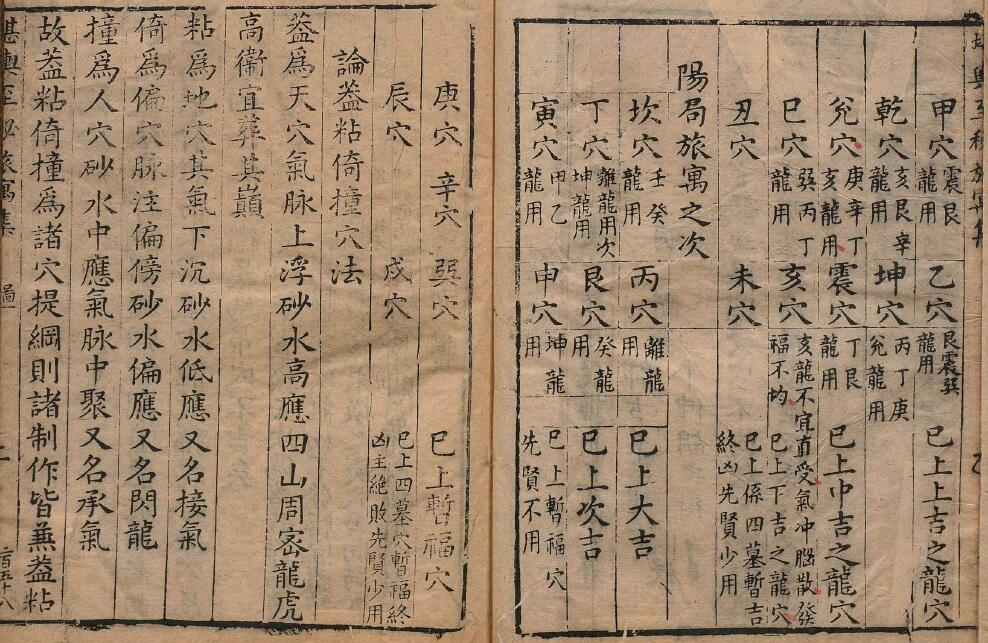 甲穴 震艮龍用 乙穴 艮震巽龍用 巳上上吉之龍穴
乾穴 亥艮辛龍用 坤穴 丙丁庚兊龍用
兊穴 庚辛丁亥龍用 震穴 丁艮龍用 巳上中吉之龍穴
巳穴 巽丙丁龍用 亥穴 亥龍不宜直受氣冲腦散發福不均 巳上下吉之龍穴
丑穴 未穴 巳上係四墓暫吉終凶先賢少用
陽局旅寓之次
坎穴 壬癸龍用 丙穴 離龍用 巳上大吉
丁穴 離龍用次坤龍用 艮穴 癸龍用 巳上次吉
寅穴 甲乙龍用 申穴 坤龍用 巳上暫福穴先賢不用
庚穴 辛穴 巽穴 巳上暫福穴
辰穴 戍穴 巳上四墓穴暫福終凶主絶敗先賢少用
論葢粘倚撞穴法
葢爲天穴氣脉上浮砂水高應四山周密龍虎
高衛宜葬其巔
粘爲地穴其氣下沉砂水低應又名接氣
倚爲偏穴脉注偏傍砂水偏應又名閃龍
撞爲人穴砂水中應氣脉中聚又名承氣
故葢粘倚撞爲諸穴提綱則諸制作皆兼葢粘
堪輿至秘旅寓集